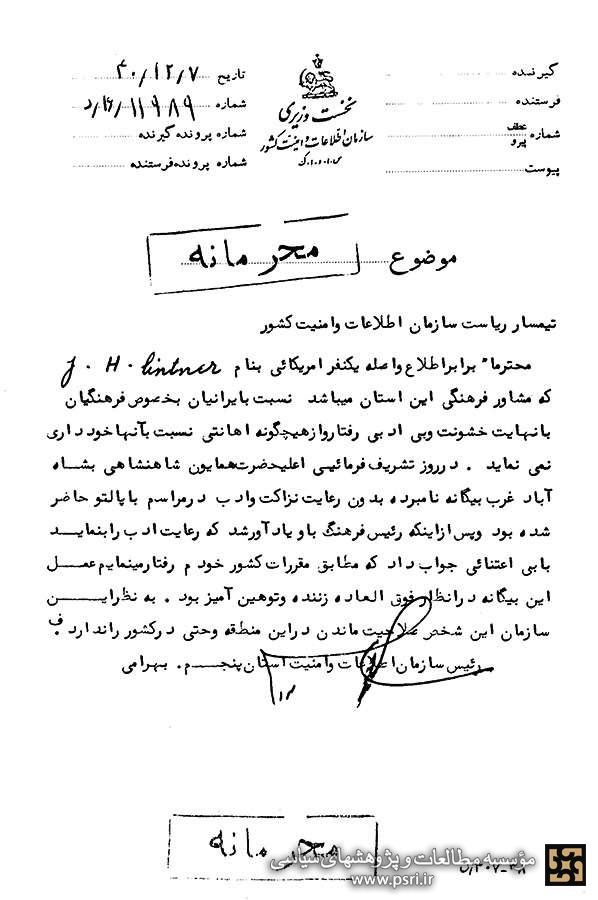 گیرنده
فرستنده
شماره عطف پیرو
پیوست
نخست وزیری
سازمان اطلاعات و امنیت کشور
س.ا.و.ا.ک
تاریخ ۴۰/۱۲/۷
شماره ۱۱۹۸۹/۱۶/د
شماره پرونده گیرنده
شماره پرونده فرستنده
موضوع محرمانه
تیمسار ریاست سازمان اطلاعات وامنیت کشور
محترما" برابر اطلاع واصله یکنفر امریکائی بنام J. H. Lintner
که مشاور فرهنگی این استان میباشد نسبت بایرانیان بخصوص فرهنگیان
بانهایت خشونت وبی ادبی رفتاروازهیچگونه اهانتی نسبت بآنها خودداری
نمی نماید . درروز تشریف فرمائیی اعلیحضرت همایون شاهنشاهی بشاه
آباد غرب بیگانه نامبرده بدون رعایت نزاکت وادب درمراسم باپالتو حاضر
شده بود وپس ازاینکه رئیس فرهنگ باو یادآورشد که رعایت ادب رابنماید
بابی اعتنائی جواب داد که مطابق مقررات کشور خودم رفتارمینمایم عمل
این بیگانه درانظار فوق العاده زننده وتوهین آمیز بود . به نظر این
سازمان این شخص صلاحیت ماندن دراین منطقه وحتی درکشور راندارد ف
رئیس سازمان اطلاعات وامنیت استان پنجم . بهرامی
محرمانه
مؤسسه مطالعات و پژوهشهای سیاسی
www.psri.ir